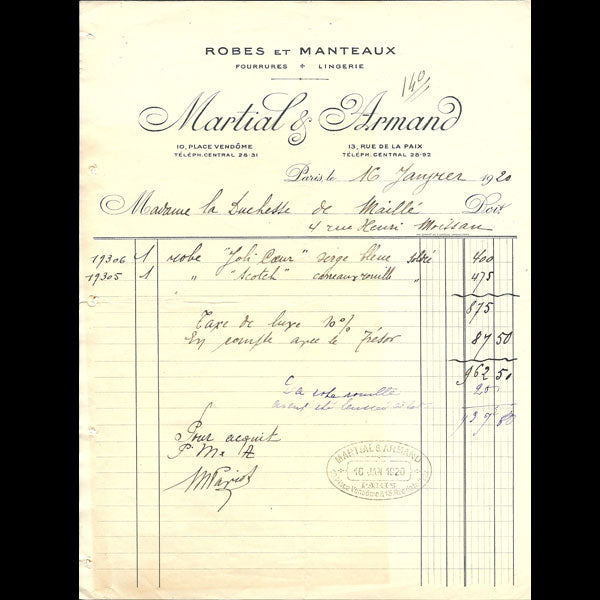 ROBES ET MANTEAUX
FOURRURES + LINGERIE
140
Martial & Armand
10, PLACE VENDÔME 13, RUE DE LA PAIX
TÉLÉPH. CENTRAL 28-31 TÉLÉPH. CENTRAL 28-92
Paris le 16 Janvier 1920
Madame la Duchesse de Maillé Doit
4 rue Henri Moissan
19306 1 robe "Joli Cœur" serge bleue soldé 400
19305 1 " "Scotch" " 475
875
Taxe de luxe 10%
En compte avec le Trésor 87 50
962 50
La robe rouille 25
Pour acquit
P. M & A
MARTIAL & ARMAND
16 JAN 1920
PARIS